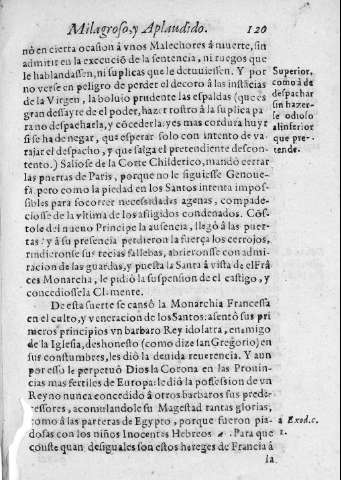 Milagroso, y Aplaudido. 120
nò en cierta ocasion à vnos Malechores à muerte, sin
admitir en la execució de la sentencia, ni ruegos que
le hablandassen, ni suplicas que le detuuiessen. Y por
no verse en peligro de perder el decoro à las instācias
de la Virgen, la boluio prudente las espaldas (que es
gran dessayre de el poder, hazer rostro à la suplica pa
ra no despacharla, y cōcederla: y es mas cordura huyr
si se ha de negar, que esperar solo con intento de va-
rajar el despacho, y que salga el pretendiente descon-
tento.) Saliose de la Corte Childerico, mandò cerrar
las puertas de Paris, porque no le siguiesse Genoue-
fa. pero como la piedad en los Santos intenta impos-
sibles para socorrer necessidades agenas, compade-
ciosse de la vltima de los afligidos condenados. Cōs-
tole del nueuo Principe la ausencia, llegò à las puer-
tas: y à su presencia perdieron la fuerça los cerrojos,
rindieronse sus recias fallebas, abrieronsse con admi-
racion de las guardas, y puesta la Santa à vista de el Frā
ces Monarcha, le pidiò la suspension de el castigo, y
concediosse la Clemente.
De esta suerte se cansò la Monarchia Francessa
en el culto, y veneracion de los Santos: asentò sus pri
meros principios vn barbaro Rey idolatra, enemigo
de la Iglesia, deshonesto (como dize san Gregorio) en
sus constumbres, les diò la deuida reuerencia. Y aun
por esso le perpetuò Dios la Corona en las Prouin-
cias mas fertiles de Europa: le diò la possession de vn
Reyno nunca concedido à otros barbaros sus prede-
cessores, acomulandole su Magestad tantas glorias,
como à las parteras de Egypto, porque fueron pia-
dosas con los niños Inocentes Hebreos a. Para que
conste quan desiguales son estos hereges de Francia à
la
Superior,
como à de
despachar
sin hazer-
se odioso
al inferior
que pre-
tende.
a Exod. c.
1.